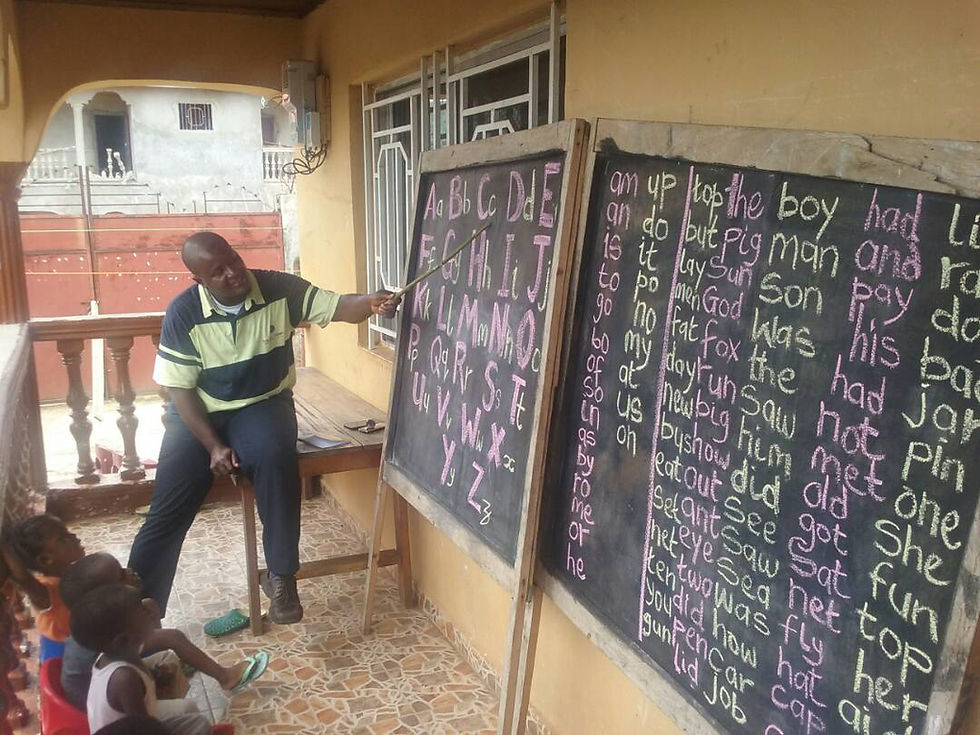 Aa Bb Cc Dd E
Ff Gg Hh Ii Jj
Kk Ll Mm Nn Oo
Pp Qq Rr Ss Tt
Uu Vv Ww Xx
Yy Zz
am
an
is
to
go
so
in
as
by
no
me
or
he
up
do
it
po
no
my
at
us
oh
top
but
lay
men
fat
day
new
by
eat
set
net
ten
you
gun
the
pig
sun
God
fox
fun
big
show
out
ant
eye
two
did
pen
lid
boy
man
son
was
the
saw
him
did
see
saw
sea
was
how
car
job
had
and
pay
his
had
not
met
old
got
sat
net
fly
hat
cap
Jar
pin
one
she
fun
top
her